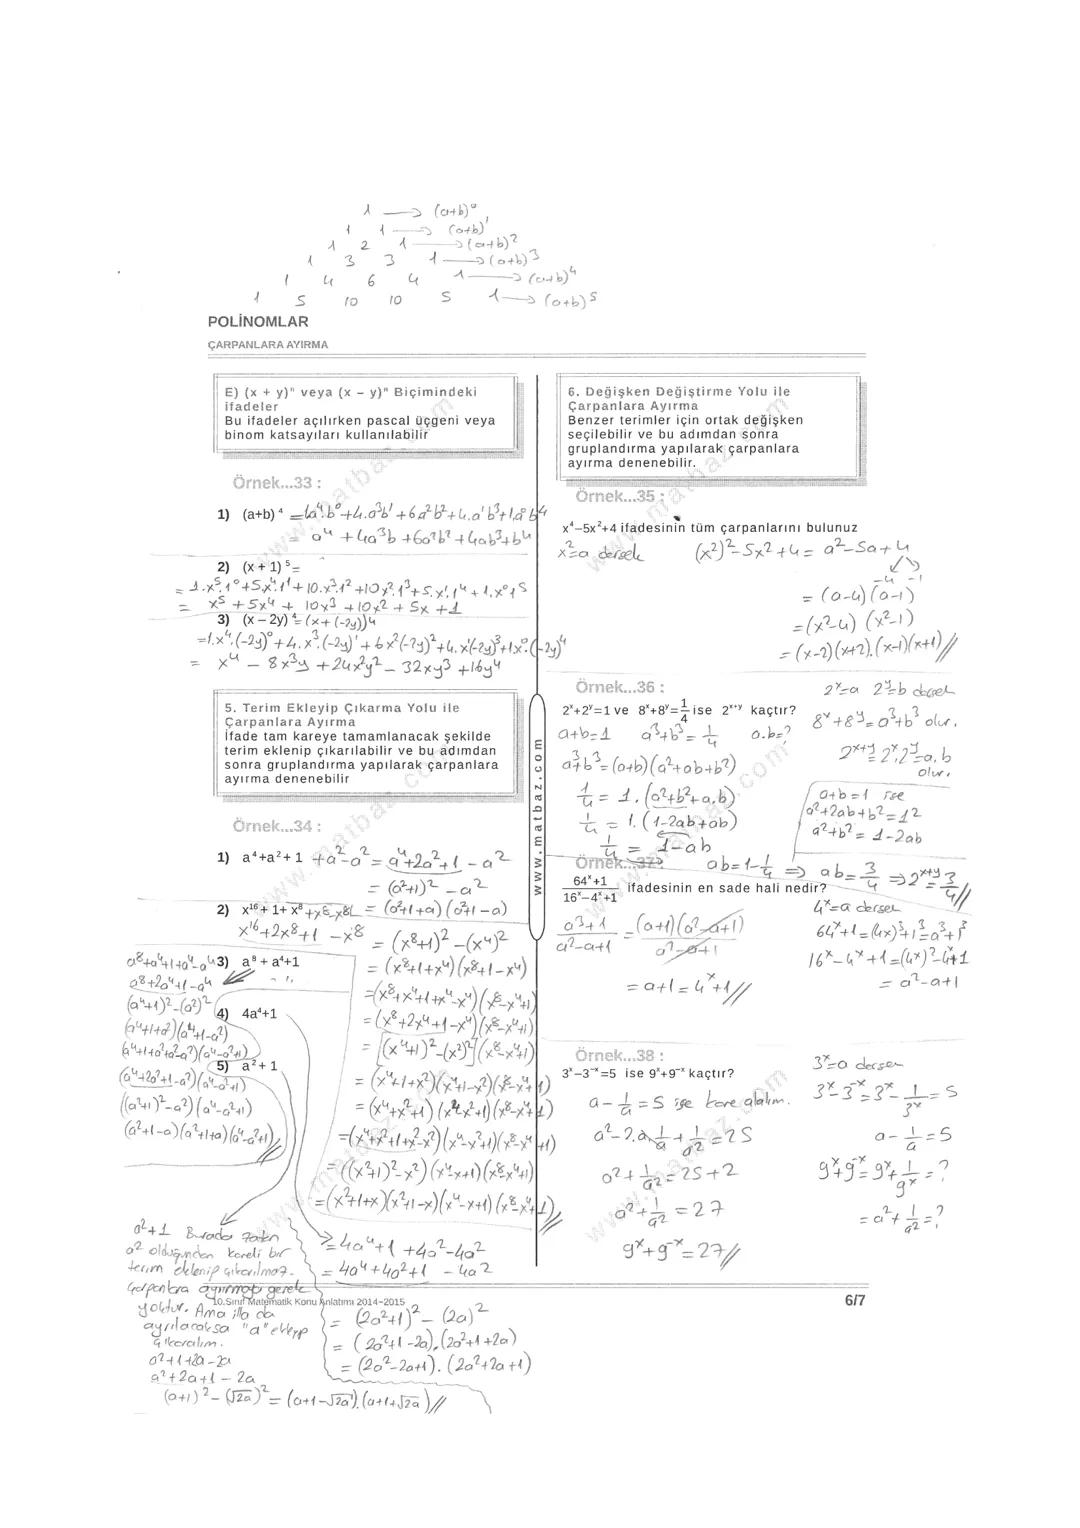 1 → (a+b)⁰
1 1 → (a+b)¹
1 2 1 → (a+b)²
1 3 3 1 → (a+b)³
1 4 6 4 1 → (a+b)⁴
1 5 10 10 5 1 → (a+b)⁵
POLİNOMLAR
ÇARPANLARA AYIRMA
E) (x + y)ⁿ veya (x – y)ⁿ Biçimindeki
ifadeler
Bu ifadeler açılırken pascal üçgeni veya
binom katsayıları kullanılabilir
Örnek...33 :
1) (a+b)⁴ = 1a⁴.b⁰+4.a³b¹+6a²b²+4.a¹b³+1.a⁰b⁴
= a⁴+4a³b+6a²b²+4ab³+b⁴
2) (x + 1)⁵ =
= 1.x⁵.1⁰+5x⁴.1¹+10.x³.1²+10x².1³+5.x¹.1⁴+1.x⁰.1⁵
= x⁵+5x⁴+10x³+10x²+5x+1
3) (x – 2y)⁴ = (x+(-2y))⁴
=1.x⁴.(-2y)⁰+4.x³.(-2y)¹+6x²(-2y)²+4.x¹(-2y)³+1x⁰.(-2y)⁴
= x⁴ – 8x³y + 24x²y² – 32xy³ + 16y⁴
5. Terim Ekleyip Çıkarma Yolu ile
Çarpanlara Ayırma
İfade tam kareye tamamlanacak şekilde
terim eklenip çıkarılabilir ve bu adımdan
sonra gruplandırma yapılarak çarpanlara
ayırma denenebilir
Örnek...34 :
1) a⁴+a²+1 +a²-a² = a⁴+2a²+1 - a²
= (a²+1)² - a²
= (a²+1+a)(a²+1-a)
2) x¹⁶+1+x⁸+x⁸-x⁸
x¹⁶+2x⁸+1 -x⁸
= (x⁸+1)²-(x⁴)²
= (x⁸+1+x⁴)(x⁸+1-x⁴)
=(x⁸+x⁴+1+x⁴-x⁴)(x⁸-x⁴+1)
=(x⁸+2x⁴+1-x⁴)(x⁸-x⁴+1)
= [(x⁴+1)²-(x²)²](x⁸-x⁴+1)
= (x⁴+1+x²)(x⁴+1-x²)(x⁸-x⁴+1)
= (x⁴+x²+1)(x⁴-x²+1)(x⁸-x⁴+1)
=(x⁴+x²+1+x²-x²)(x⁴-x²+1)(x⁸-x⁴+1)
= ((x²+1)²-x²)(x⁴-x+1)(x⁸-x⁴+1)
=(x²+1+x)(x²+1-x)(x⁴-x+1)(x⁸-x⁴+1)//
3) a⁸+a⁴+1
a⁸+a⁴+1+a⁴-a⁴
a⁸+2a⁴+1-a⁴
(a⁴+1)²-(a²)²
(a⁴+1+a²)(a⁴+1-a²)
(a⁴+1+a²+a²-a²)(a⁴-a²+1)
(a⁴+2a²+1-a²)(a⁴-a²+1)
((a²+1)²-a²)(a⁴-a²+1)
(a²+1-a)(a²+1+a)(a⁴-a²+1)//
4) 4a⁴+1
5) a²+1
= 4a⁴+1+4a²-4a²
= 4a⁴+4a²+1 - 4a²
= (2a²+1)² - (2a)²
= (2a²+1-2a).(2a²+1+2a)
= (2a²-2a+1).(2a²+2a+1)
a²+1 Burada zaten
a² olduğundan kareli bir
terim eklenip çıkarılmaz.
Çarpanlara ayırmaya gerek
yoktur. Ama illa da
ayrılacaksa "a" ekleyip
çıkaralım.
a²+1+2a-2a
a²+2a+1-2a
(a+1)²-(√2a)² = (a+1-√2a).(a+1+√2a)//
www.matbaz.com
6. Değişken Değiştirme Yolu ile
Çarpanlara Ayırma
Benzer terimler için ortak değişken
seçilebilir ve bu adımdan sonra
gruplandırma yapılarak çarpanlara
ayırma denenebilir.
Örnek...35 :
x⁴–5x²+4 ifadesinin tüm çarpanlarını bulunuz
x²=a dersek (x²)²-5x²+4 = a²-5a+4
-4 -1
= (a-4)(a-1)
=(x²-4)(x²-1)
= (x-2)(x+2).(x-1)(x+1)//
Örnek...36 :
2ˣ=a 2ʸ=b dersek
2ˣ+2ʸ=1 ve 8ˣ+8ʸ=1/4 ise 2ˣ⁺ʸ kaçtır?
8ˣ+8ʸ=a³+b³ olur.
a+b=1 a³+b³=1/4 a.b=?
2ˣ⁺ʸ=2ˣ.2ʸ=a.b
olur.
a³+b³=(a+b)(a²+ab+b²)
1/4 = 1.(a²+b²+a.b)
1/4 = 1.(1-2ab+ab)
1/4 = 1-ab
a+b=1 ise
a²+2ab+b²=1²
a²+b²=1-2ab
ab=1-1/4 ⇒ ab=3/4 ⇒ 2ˣ⁺ʸ=3/4//
Örnek...37 :
64ˣ+1 / 16ˣ–4ˣ+1 ifadesinin en sade hali nedir?
4ˣ=a dersek
64ˣ+1=(4x)³+1³=a³+1³
16ˣ-4ˣ+1=(4ˣ)²-4ˣ+1
= a²-a+1
a³+1 / a²-a+1 = (a+1)(a²-a+1) / a²-a+1
= a+1 = 4ˣ+1//
Örnek...38 :
3ˣ–3⁻ˣ=5 ise 9ˣ+9⁻ˣ kaçtır?
3ˣ=a dersek
3ˣ-3⁻ˣ=3ˣ-1/3ˣ=5
a-1/a=5
9ˣ+9⁻ˣ=9ˣ+1/9ˣ=?
= a²+1/a²=?
a-1/a=5 ise kare alalım.
a²-2.a.1/a+1/a²=25
a²+1/a²=25+2
a²+1/a²=27
9ˣ+9⁻ˣ=27//
10.Sınıf Matematik Konu Anlatımı 2014-2015
6/7